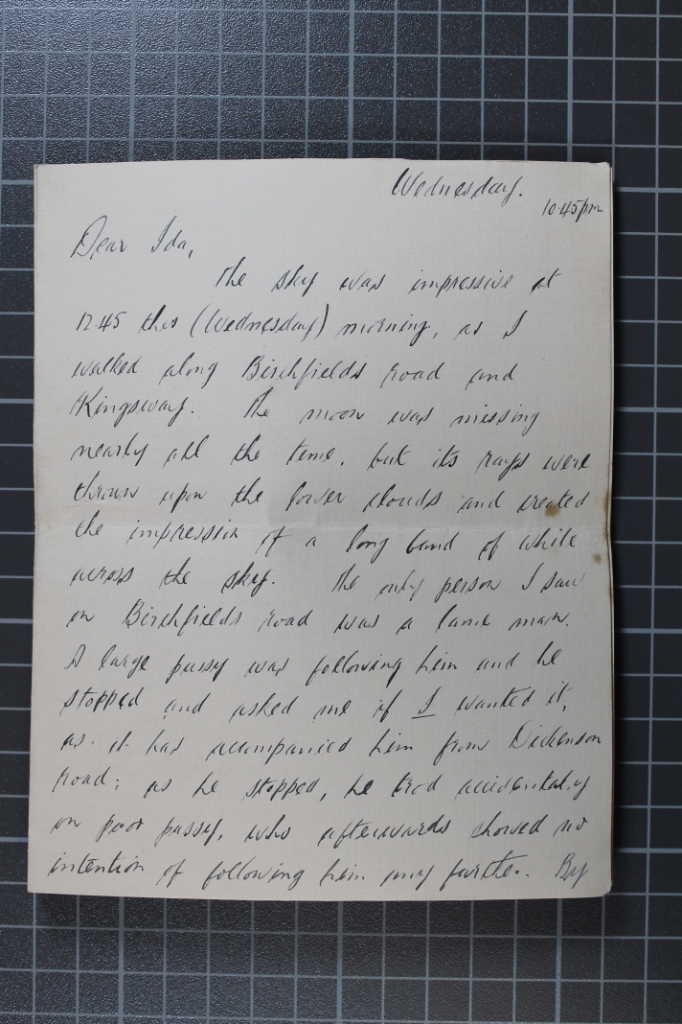 Wednesday.
10.45pm
Dear Ida,
The sky was impressive at
12.45 this (Wednesday) morning, as I
walked along Birchfields road and
Kingsway. The moon was missing
nearly all the time, but its rays were
thrown upon the lower clouds and created
the impression of a long band of white
across the sky. The only person I saw
on Birchfields road was a lame man.
A large pussy was following him and he
stopped and asked me if I wanted it,
as it has acompanied him from Dickenson
road; as he stopped, he trod accidentally
on poor pussy, who afterwards showed no
intention of following him any further. By